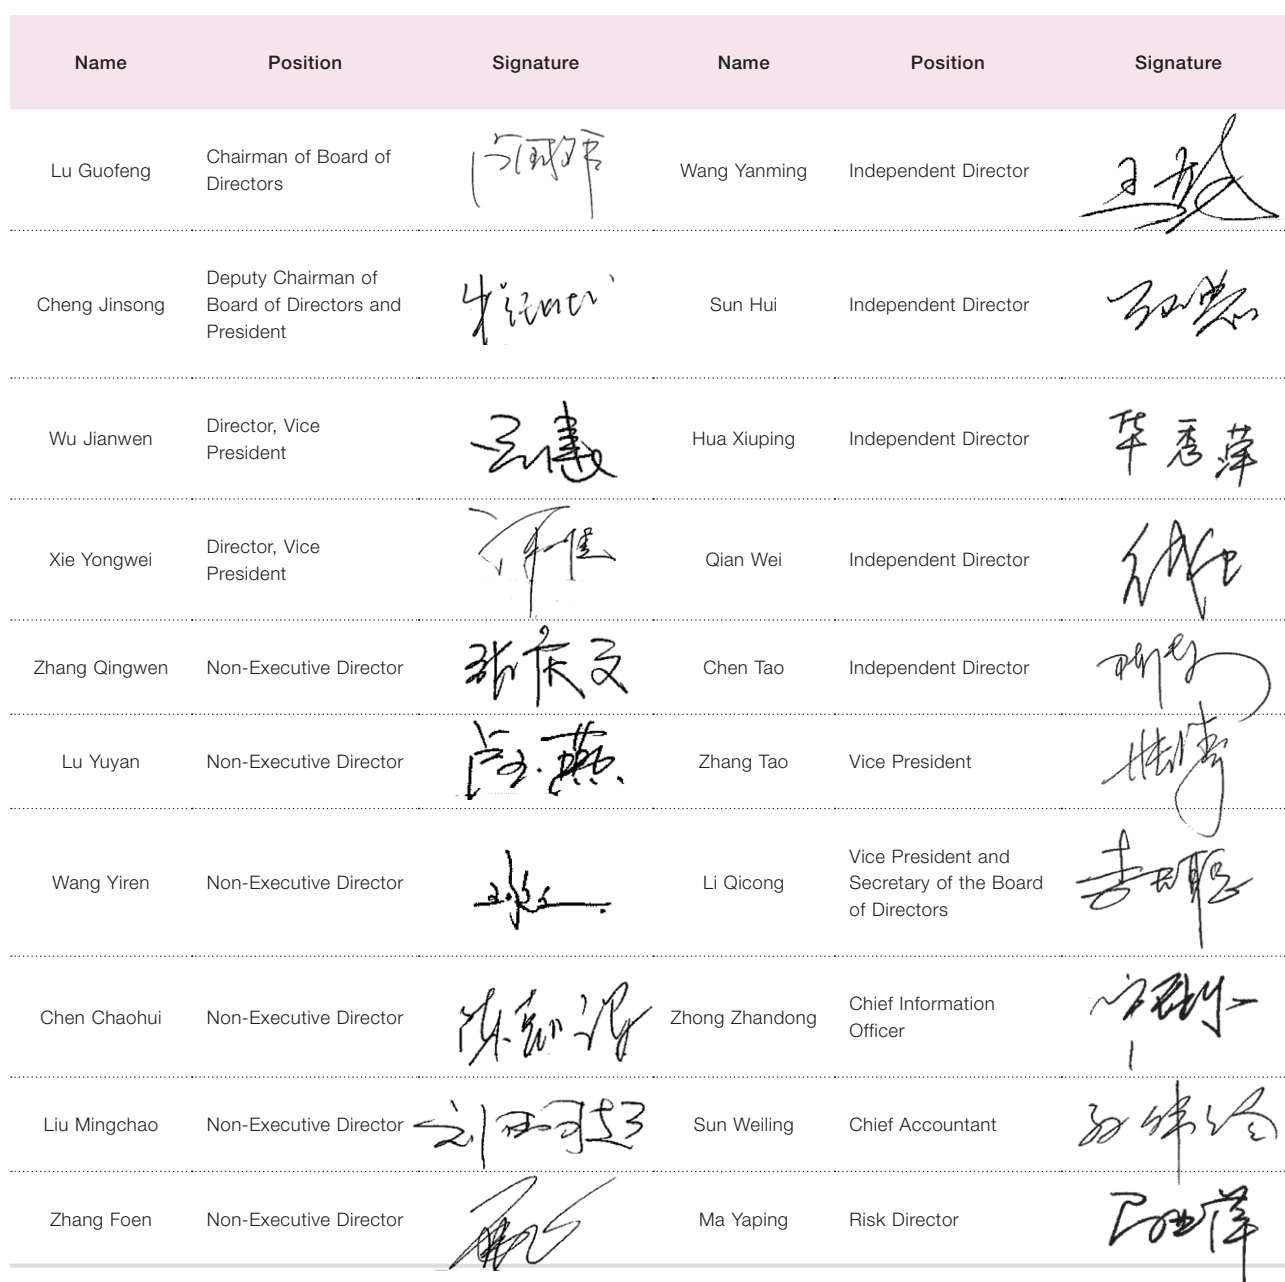 Name Position Signature Name Position Signature
Lu Guofeng Chairman of Board of Directors Wang Yanming Independent Director
Cheng Jinsong Deputy Chairman of Board of Directors and President Sun Hui Independent Director
Wu Jianwen Director, Vice President Hua Xiuping Independent Director 华秀萍
Xie Yongwei Director, Vice President Qian Wei Independent Director
Zhang Qingwen Non-Executive Director 张庆文 Chen Tao Independent Director
Lu Yuyan Non-Executive Director Zhang Tao Vice President
Wang Yiren Non-Executive Director Li Qicong Vice President and Secretary of the Board of Directors
Chen Chaohui Non-Executive Director Zhong Zhandong Chief Information Officer
Liu Mingchao Non-Executive Director Sun Weiling Chief Accountant
Zhang Foen Non-Executive Director Ma Yaping Risk Director